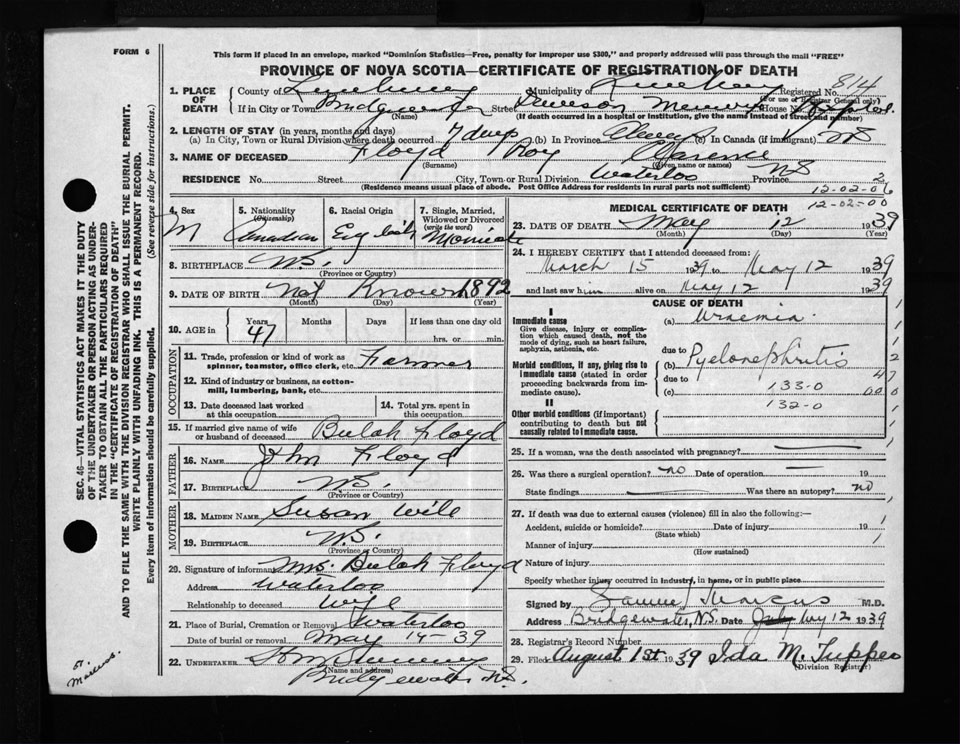 FORM 6
This form if placed in an envelope, marked "Dominion Statistics—Free, penalty for improper use $300," and properly addressed will pass through the mail "FREE"
PROVINCE OF NOVA SCOTIA—CERTIFICATE OF REGISTRATION OF DEATH
1. PLACE OF DEATH
County of Municipality of Registered No. 814
(For use of Registrar General only)
If in City or Town Bridgewater Street Dawson Memorial House No. Hospital
(Name) (If death occurred in a hospital or institution, give the name instead of street and number)
2. LENGTH OF STAY (in years, months and days)
(a) In City, Town or Rural Division where death occurred 7 days (b) In Province Always (c) In Canada (if immigrant) NS
3. NAME OF DECEASED Floyd Roy Clarence
(Surname) (Given name or names)
RESIDENCE No. Street City, Town or Rural Division Waterloo Province NS
(Residence means usual place of abode. Post Office Address for residents in rural parts not sufficient)
2
12-02-06
12-02-00
4. Sex M
5. Nationality (Citizenship) Canadian
6. Racial Origin English
7. Single, Married, Widowed or Divorced (write the word) Married
8. BIRTHPLACE N.S.
(Province or Country)
9. DATE OF BIRTH Not Known 1892
(Month) (Day) (Year)
10. AGE in Years 47 Months Days If less than one day old
hrs. or min.
OCCUPATION
11. Trade, profession or kind of work as spinner, teamster, office clerk, etc. Farmer
12. Kind of industry or business, as cotton-mill, lumbering, bank, etc.
13. Date deceased last worked at this occupation
14. Total yrs. spent in this occupation
15. If married give name of wife or husband of deceased Bulah Floyd
FATHER
16. NAME John Floyd
17. BIRTHPLACE N.S.
(Province or Country)
MOTHER
18. MAIDEN NAME Susan Wile
19. BIRTHPLACE N.S.
(Province or Country)
20. Signature of informant Mrs. Bulah Floyd
Address Waterloo
Relationship to deceased Wife
21. Place of Burial, Cremation or Removal Waterloo
Date of burial or removal May 14-39
22. UNDERTAKER
(Name and address)
Bridgewater N.S.
MEDICAL CERTIFICATE OF DEATH
23. DATE OF DEATH May 12 1939
(Month) (Day) (Year)
24. I HEREBY CERTIFY that I attended deceased from:
March 15 1939 to May 12 1939
and last saw him alive on May 12 1939
CAUSE OF DEATH
I
Immediate cause
Give disease, injury or complication which caused death, not the mode of dying, such as heart failure, asphyxia, asthenia, etc.
(a) Uraemia
due to
Morbid conditions, if any, giving rise to immediate cause (stated in order proceeding backwards from immediate cause).
(b) Pyelonephritis
due to
(c) 133-0
132-0
II
Other morbid conditions (if important) contributing to death but not causally related to immediate cause.
25. If a woman, was the death associated with pregnancy?
26. Was there a surgical operation? no Date of operation 19
State findings Was there an autopsy? no
27. If death was due to external causes (violence) fill in also the following:—
Accident, suicide or homicide? Date of injury 19
(State which)
Manner of injury
(How sustained)
Nature of injury
Specify whether injury occurred in industry, in home, or in public place
Signed by Samuel Marcus M.D.
Address Bridgewater, N.S. Date May 12 1939
28. Registrar's Record Number
29. Filed August 1st 1939 Ida M. Tupper
(Division Registrar)
SEC. 46—VITAL STATISTICS ACT MAKES IT THE DUTY OF THE UNDERTAKER OR PERSON ACTING AS UNDERTAKER TO OBTAIN ALL THE PARTICULARS REQUIRED IN THE "CERTIFICATE OF REGISTRATION OF DEATH" AND TO FILE THE SAME WITH THE DIVISION REGISTRAR WHO SHALL ISSUE THE BURIAL PERMIT.
WRITE PLAINLY WITH UNFADING INK. THIS IS A PERMANENT RECORD.
Every item of information should be carefully supplied. (See reverse side for instructions.)